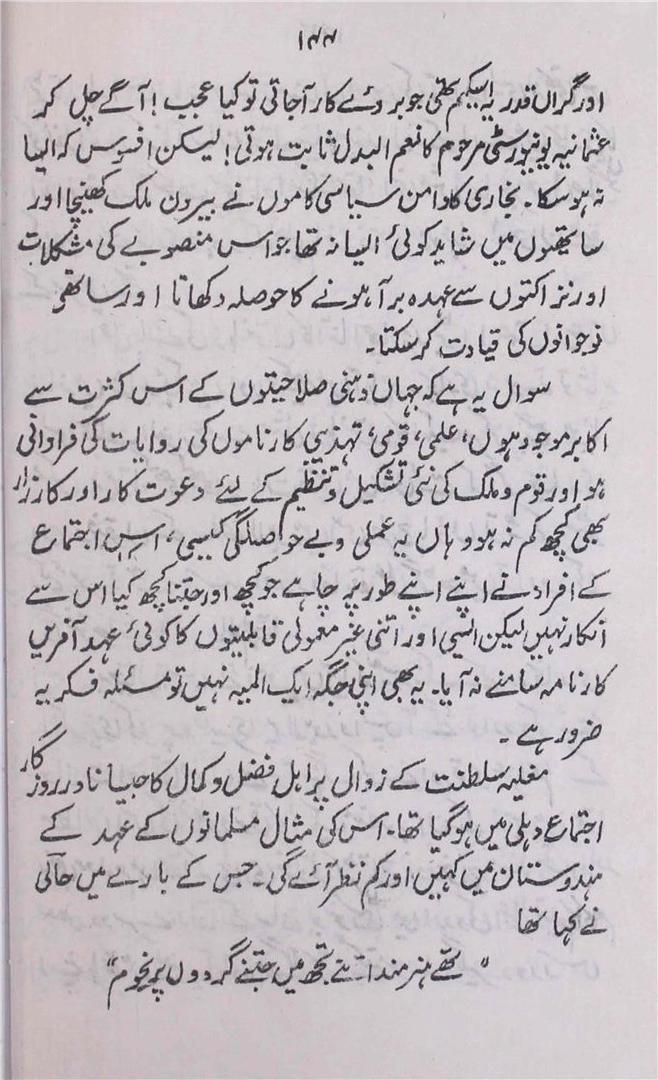 ۱۴۴
اور گراں قدر یہ اسکیم تھی جو بروئے کار آجاتی تو کیا عجب! آگے چل کر
عثمانیہ یونیورسٹی مرحوم کا نعم البدل ثابت ہوتی! لیکن افسوس کہ ایسا
نہ ہوسکا۔ بخاری کا دامن سیاسی کاموں نے بیرون ملک کھینچا اور
ساتھیوں میں شاید کوئی ایسا نہ تھا جو اس منصوبے کی مشکلات
اور نزاکتوں سے عہدہ برآ ہونے کا حوصلہ دکھاتا اور ساتھی
نوجوانوں کی قیادت کر سکتا۔
سوال یہ ہے کہ جہاں ذہنی صلاحیتوں کے اس کثرت سے
اکابر موجود ہوں، علمی، قومی، تہذیبی کارناموں کی روایات کی فراوانی
ہو اور قوم و ملک کی نئی تشکیل و تنظیم کے لئے دعوت کار اور کارزار
بھی کچھ کم نہ ہو وہاں یہ عملی و بے حوصلگی کیسی، اس اجتماع
کے افراد نے اپنے اپنے طور پر چاہے جو کچھ اور جتنا کچھ کیا اس سے
انکار نہیں لیکن ایسی اور اتنی غیر معمولی قابلیتوں کا کوئی عہد آفریں
کارنامہ سامنے نہ آیا۔ یہ بھی اپنی جگہ ایک المیہ نہیں تو مسئلہ فکریہ
ضرور ہے۔
مغلیہ سلطنت کے زوال پر اہل فضل و کمال کا جیسا نادر روزگار
اجتماع دہلی میں ہو گیا تھا۔ اس کی مثال مسلمانوں کے عہد کے
ہندوستان میں کہیں اور کم نظر آئے گی۔ جس کے بارے میں حالی
نے کہا تھا
"تھے ہنر مند اتنے تجھ میں جتنے گردوں پر نجوم"